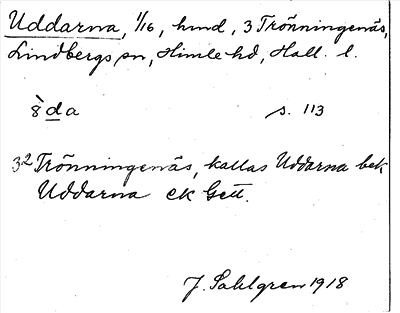 Uddarna, 1/16, hmd, 3 Trönningenäs,
Lindbergs sn, Himle hd, Hall. l.
8̀da s. 113
3² Trönningenäs, kallas Uddarna bek
Uddarna EK Gett.
J. Sahlgren 1918